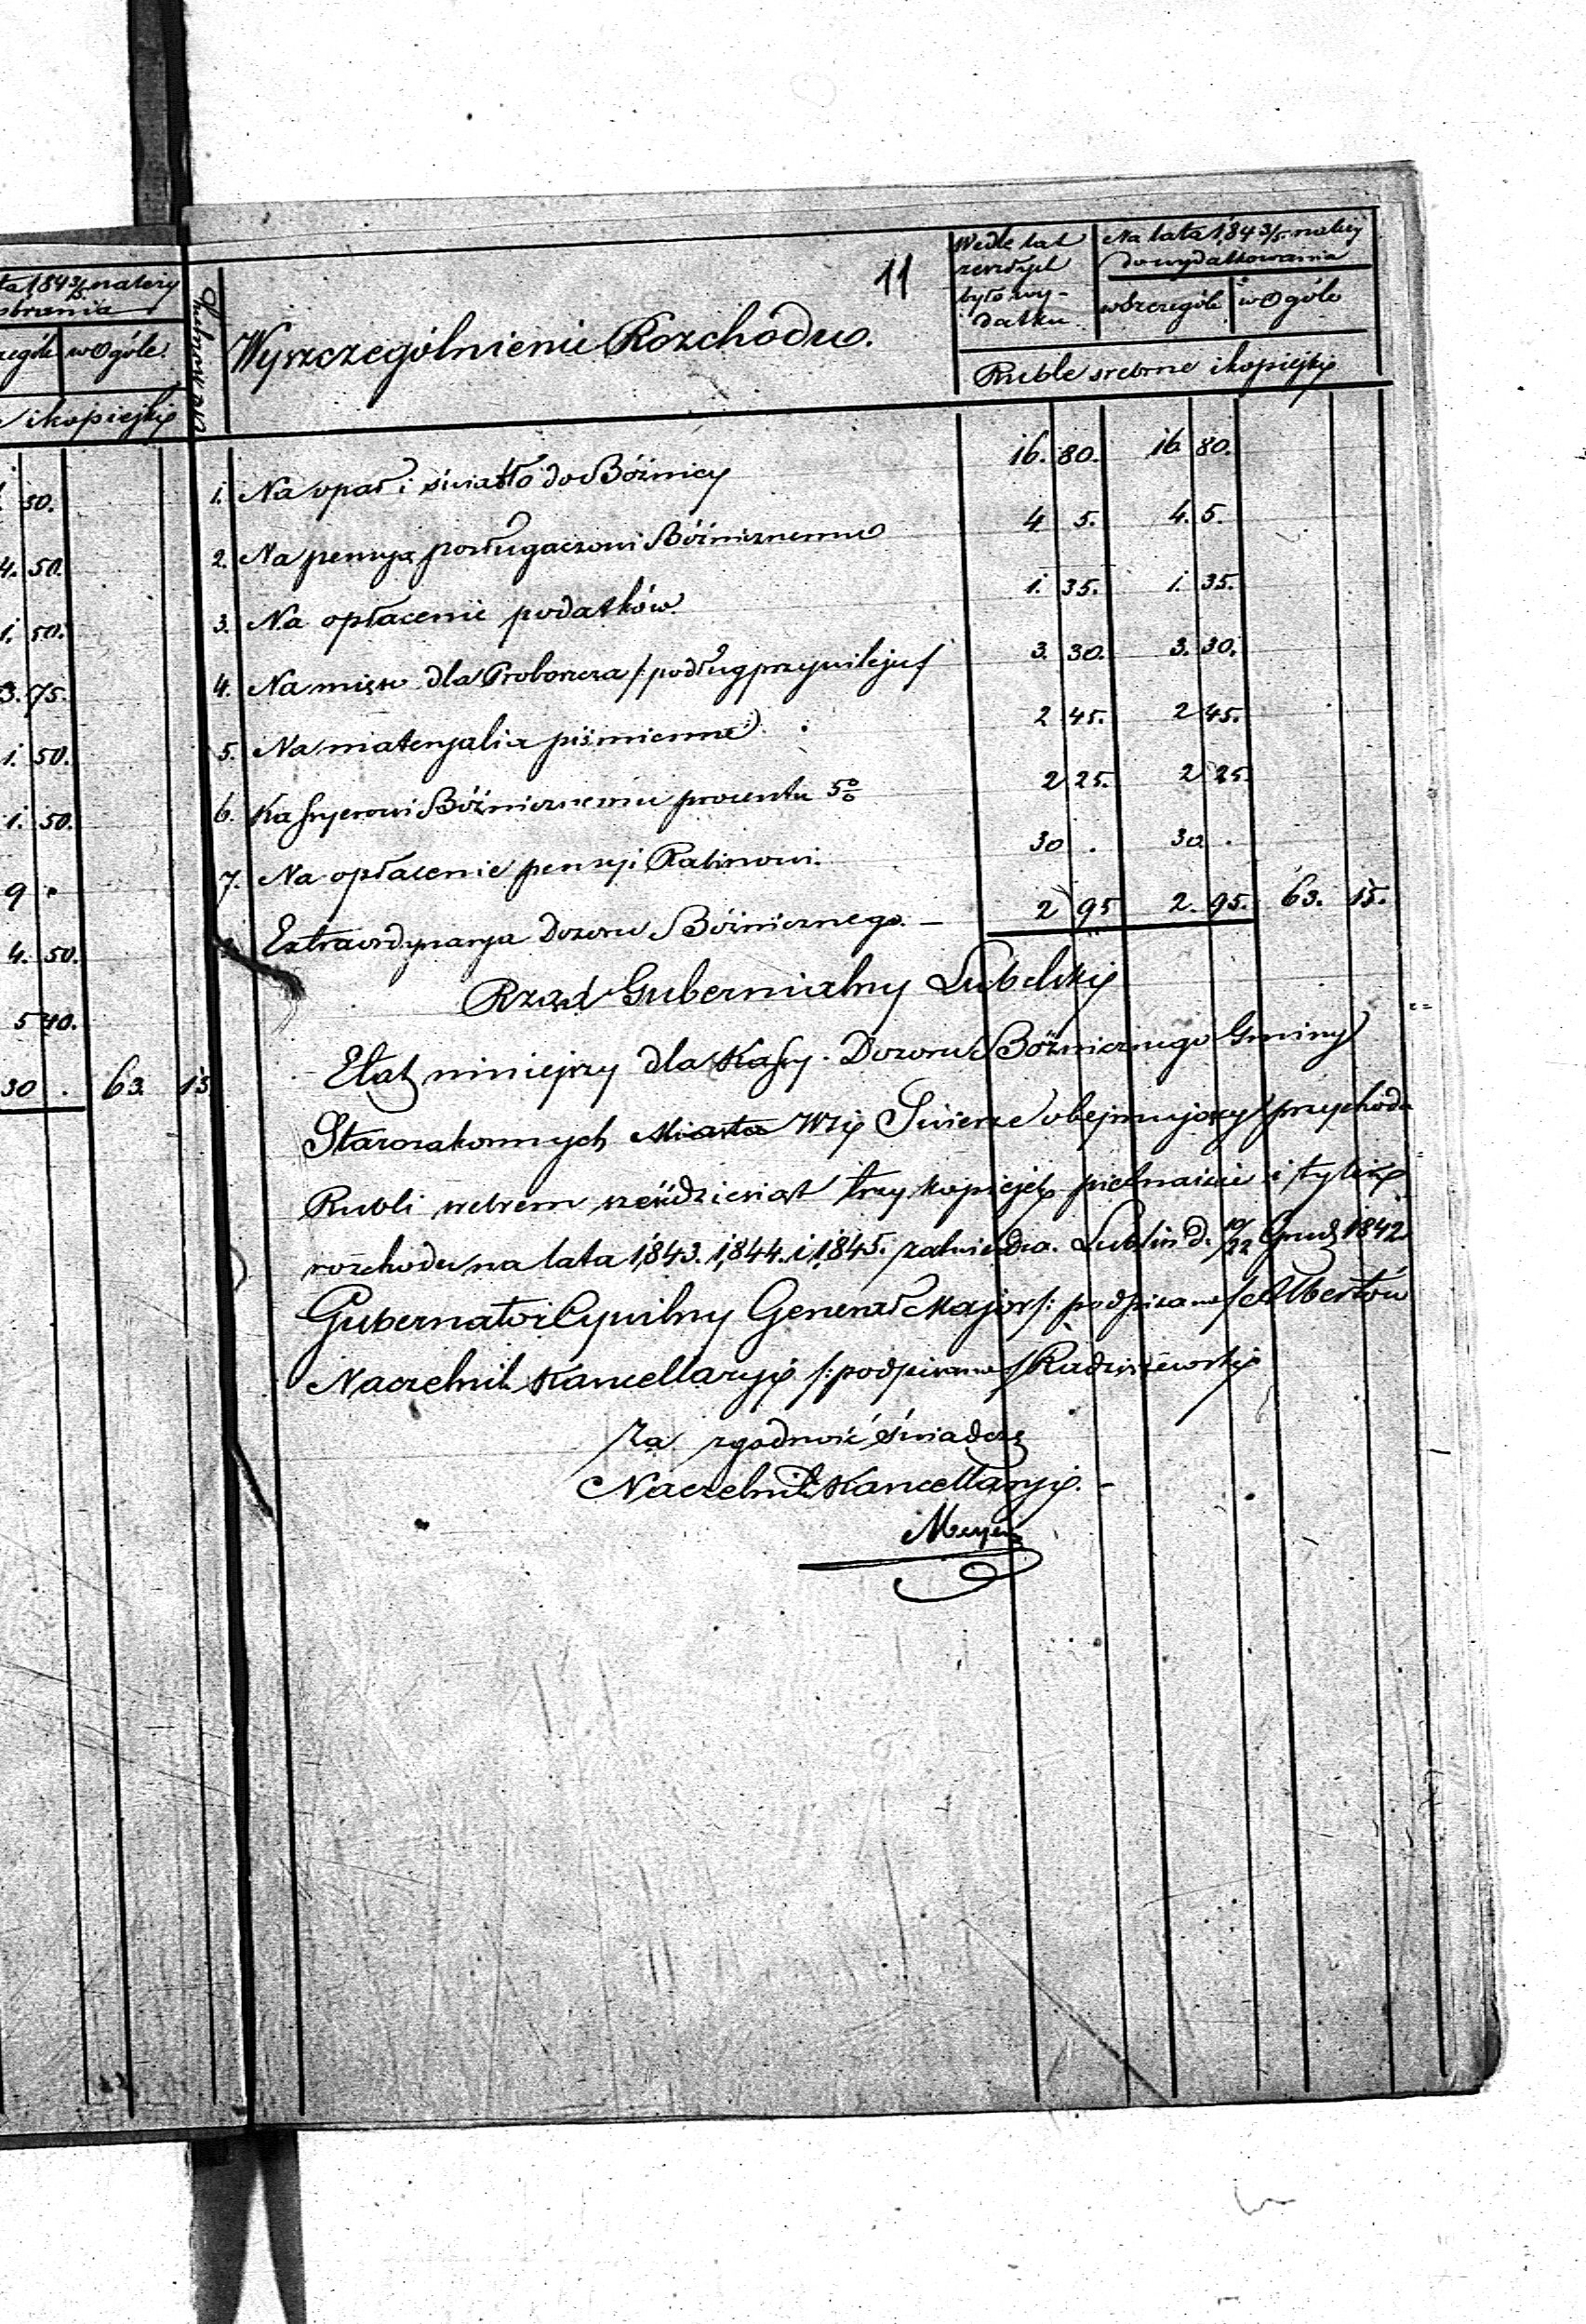 ta 184 3/5 należy
brania
zególe w Ogóle
i kopiejki
50.
4. 50.
1. 50.
3. 75.
1. 50.
1. 50.
9 .
4. 50.
5 40.
30 . 63. 15
11
Wyszczególnienie Rozchodu.
Wedle lat
zeszłych
było wy-
datku
Na lata 184 3/5 należy
do wydatkowania
w Szczególe w Ogóle
Ruble srebrne i kopiejki
1. Na opał i światło do Bóźnicy 16. 80. 16 80.
2. Na pensyą posługaczowi Bóźnicznemu 4 5. 4. 5.
3. Na opłacenie podatków 1. 35. 1. 35.
4. Na mięso dla Proboszcza /: podług przywileju :/ 3. 30. 3. 30.
5. Na materyalia piśmienne . 2 45. 2 45.
6. Kassyerowi Bóźnicznemu procentu 5 % 2 25. 2 25.
7. Na opłacenie pensyi Rabinowi. 30 . 30 .
Extraordynarya Dozoru Bóźnicznego. – 2 95 2. 95. 63. 15.
Rząd Gubernialny Lubelski
Etat niniejszy dla Kassy Dozoru Bóźnicznego Gminy
Starozakonnych Miasta Wsi Świerże obejmujący przychodu
Rubli srebrem sześćdziesiąt trzy kopiejek piętnaście i tyleż
rozchodu na lata 1843. 1844. i 1845. zatwierdza. Lublin d. 10/22 Grud 1842
Gubernator Cywilny Generał Major /: podpisano :/ Albertów
Naczelnik Kancellaryi /: podpisano :/ Radziszewski
Za zgodność świadczę
Naczelnik Kancellaryi. –